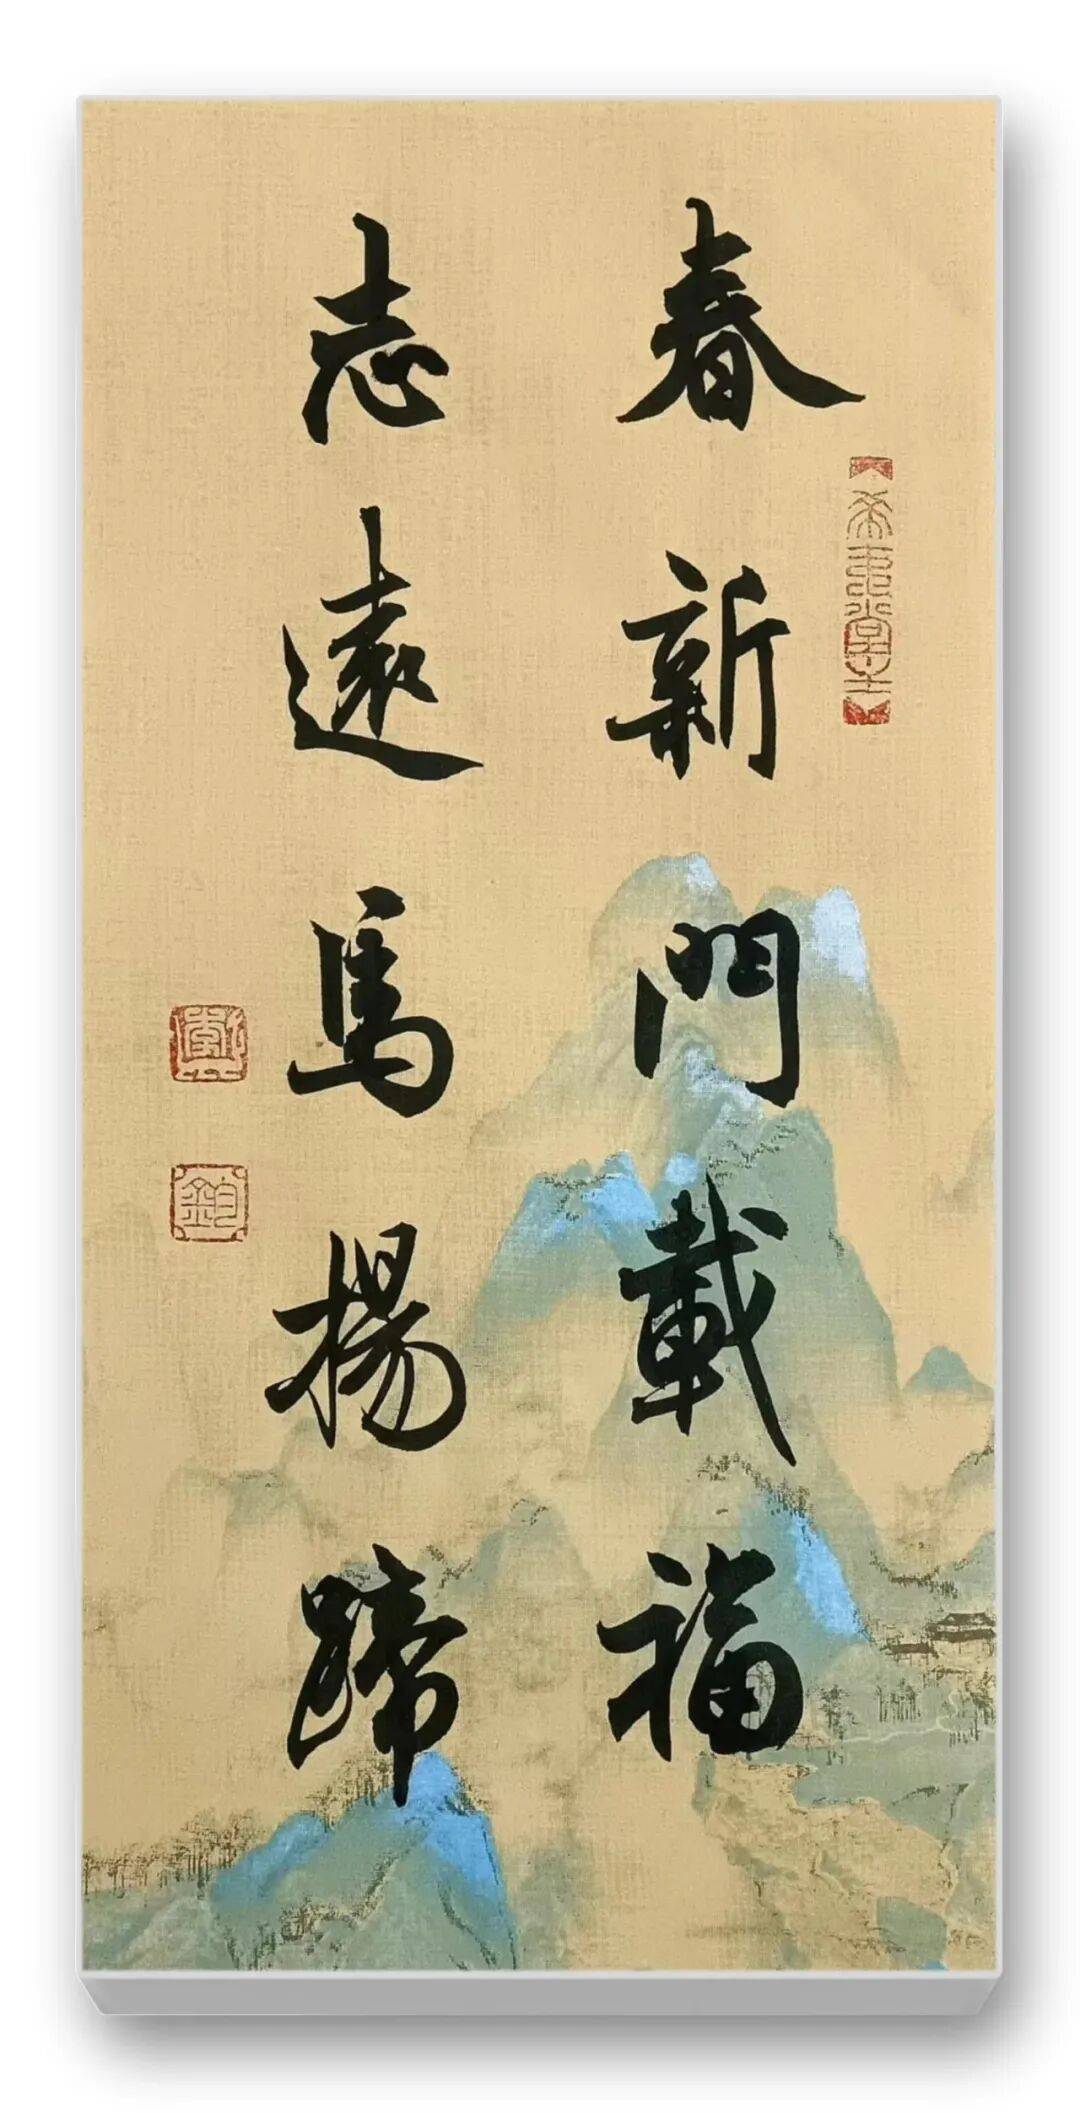 春新門載福
志遠馬揚蹄